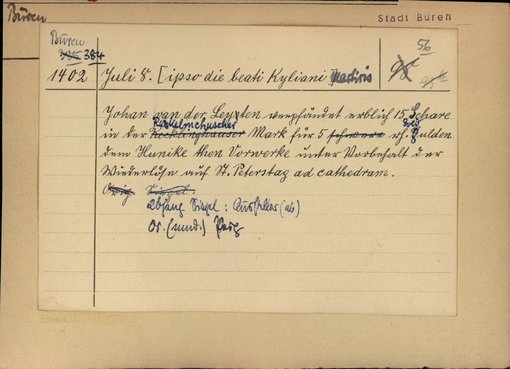 Büren
Stadt Büren
Büren
384
56
1402 Juli 8. [ipso die beati Kyliani Martiris
Johan van der Leyten verpfändet erblich 15 Schare
in der Mark für 5 rh. Gulden
dem Hunike then Vorwerke unter Vorbehalt der
Wiederlöse auf St. Peterstag ad cathedram.
Orig. Siegel.
Abhang Siegel: Aussteller (ab)
Or. (mnd.) Perg